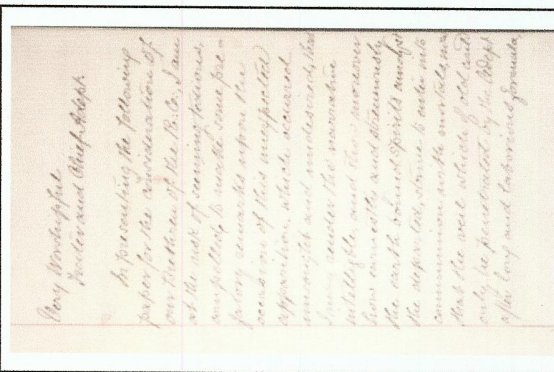 Very Worshipful
Frater and Chief Adept
In presenting the following
paper for the consideration of
our Brethren of the R.C., I am
at the risk of seeming tedious
compelled to make some pre-
fatory remarks upon the
occasion of this unexpected
apparition, which occurred
unsought and undesired, tho
under the
intelligible, and tho moreover
how earnestly and strenuously
the earth bound spirits amongst
the departed, some to enter into
communion with mortals on
that the veil which of old could
only be penetrated by the Adept
after long and laborious formula,